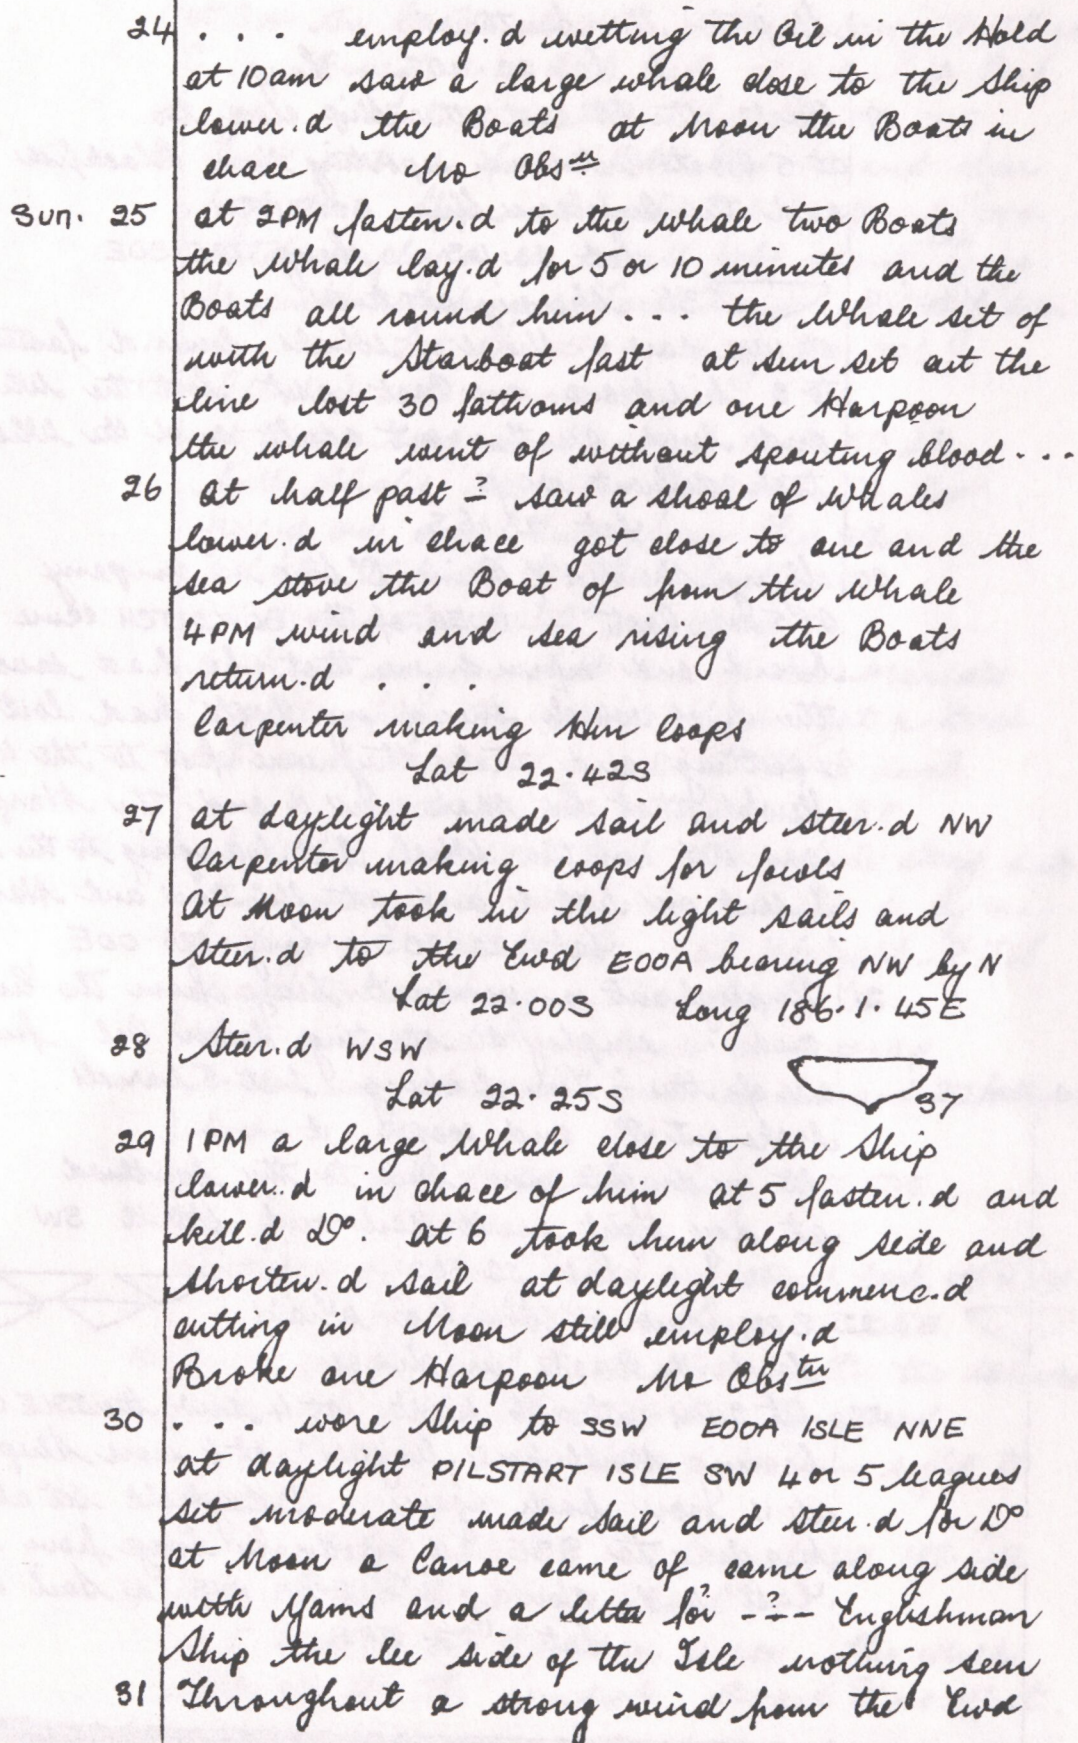 24 . . . employ.d wetting the Oil in the Hold
at 10am saw a large whale close to the Ship
lower.d the Boats at Noon the Boats in
chace No Obsn
Sun. 25 at 2PM fasten.d to the whale two Boats
the Whale lay.d for 5 or 10 minutes and the
Boats all round him . . . the Whale set of
with the Starboat fast at sun set cut the
line lost 30 fathoms and one Harpoon
the whale went of without spouting blood . . .
26 at half past ? saw a shoal of Whales
lower.d in chace got close to one and the
sea stove the Boat of from the Whale
4PM wind and sea rising the Boats
return.d . . .
Carpenter making Hen Coops
Lat 22.42S
27 at daylight made sail and steer.d NW
Carpenter making coops for fowls
At Noon took in the light sails and
steer.d to the Ewd EOOA bearing NW by N
Lat 22.00S Long 186.1.45E
28 Steer.d WSW
Lat 22.25S 37
29 1PM a large Whale close to the Ship
lower.d in chace of him at 5 fasten.d and
kill.d Do. at 6 took him along side and
shorten.d sail at daylight commenc.d
cutting in Noon still employ.d
Broke one Harpoon No Obstn
30 . . . wore Ship to SSW EOOA ISLE NNE
at daylight PILSTART ISLE SW 4 or 5 leagues
set moderate made sail and steer.d for Do
at Noon a Canoe came of came along side
with Yams and a letter for --?-- Englishman
Ship the lee side of the Isle nothing seen
31 Throughout a strong wind from the Ewd